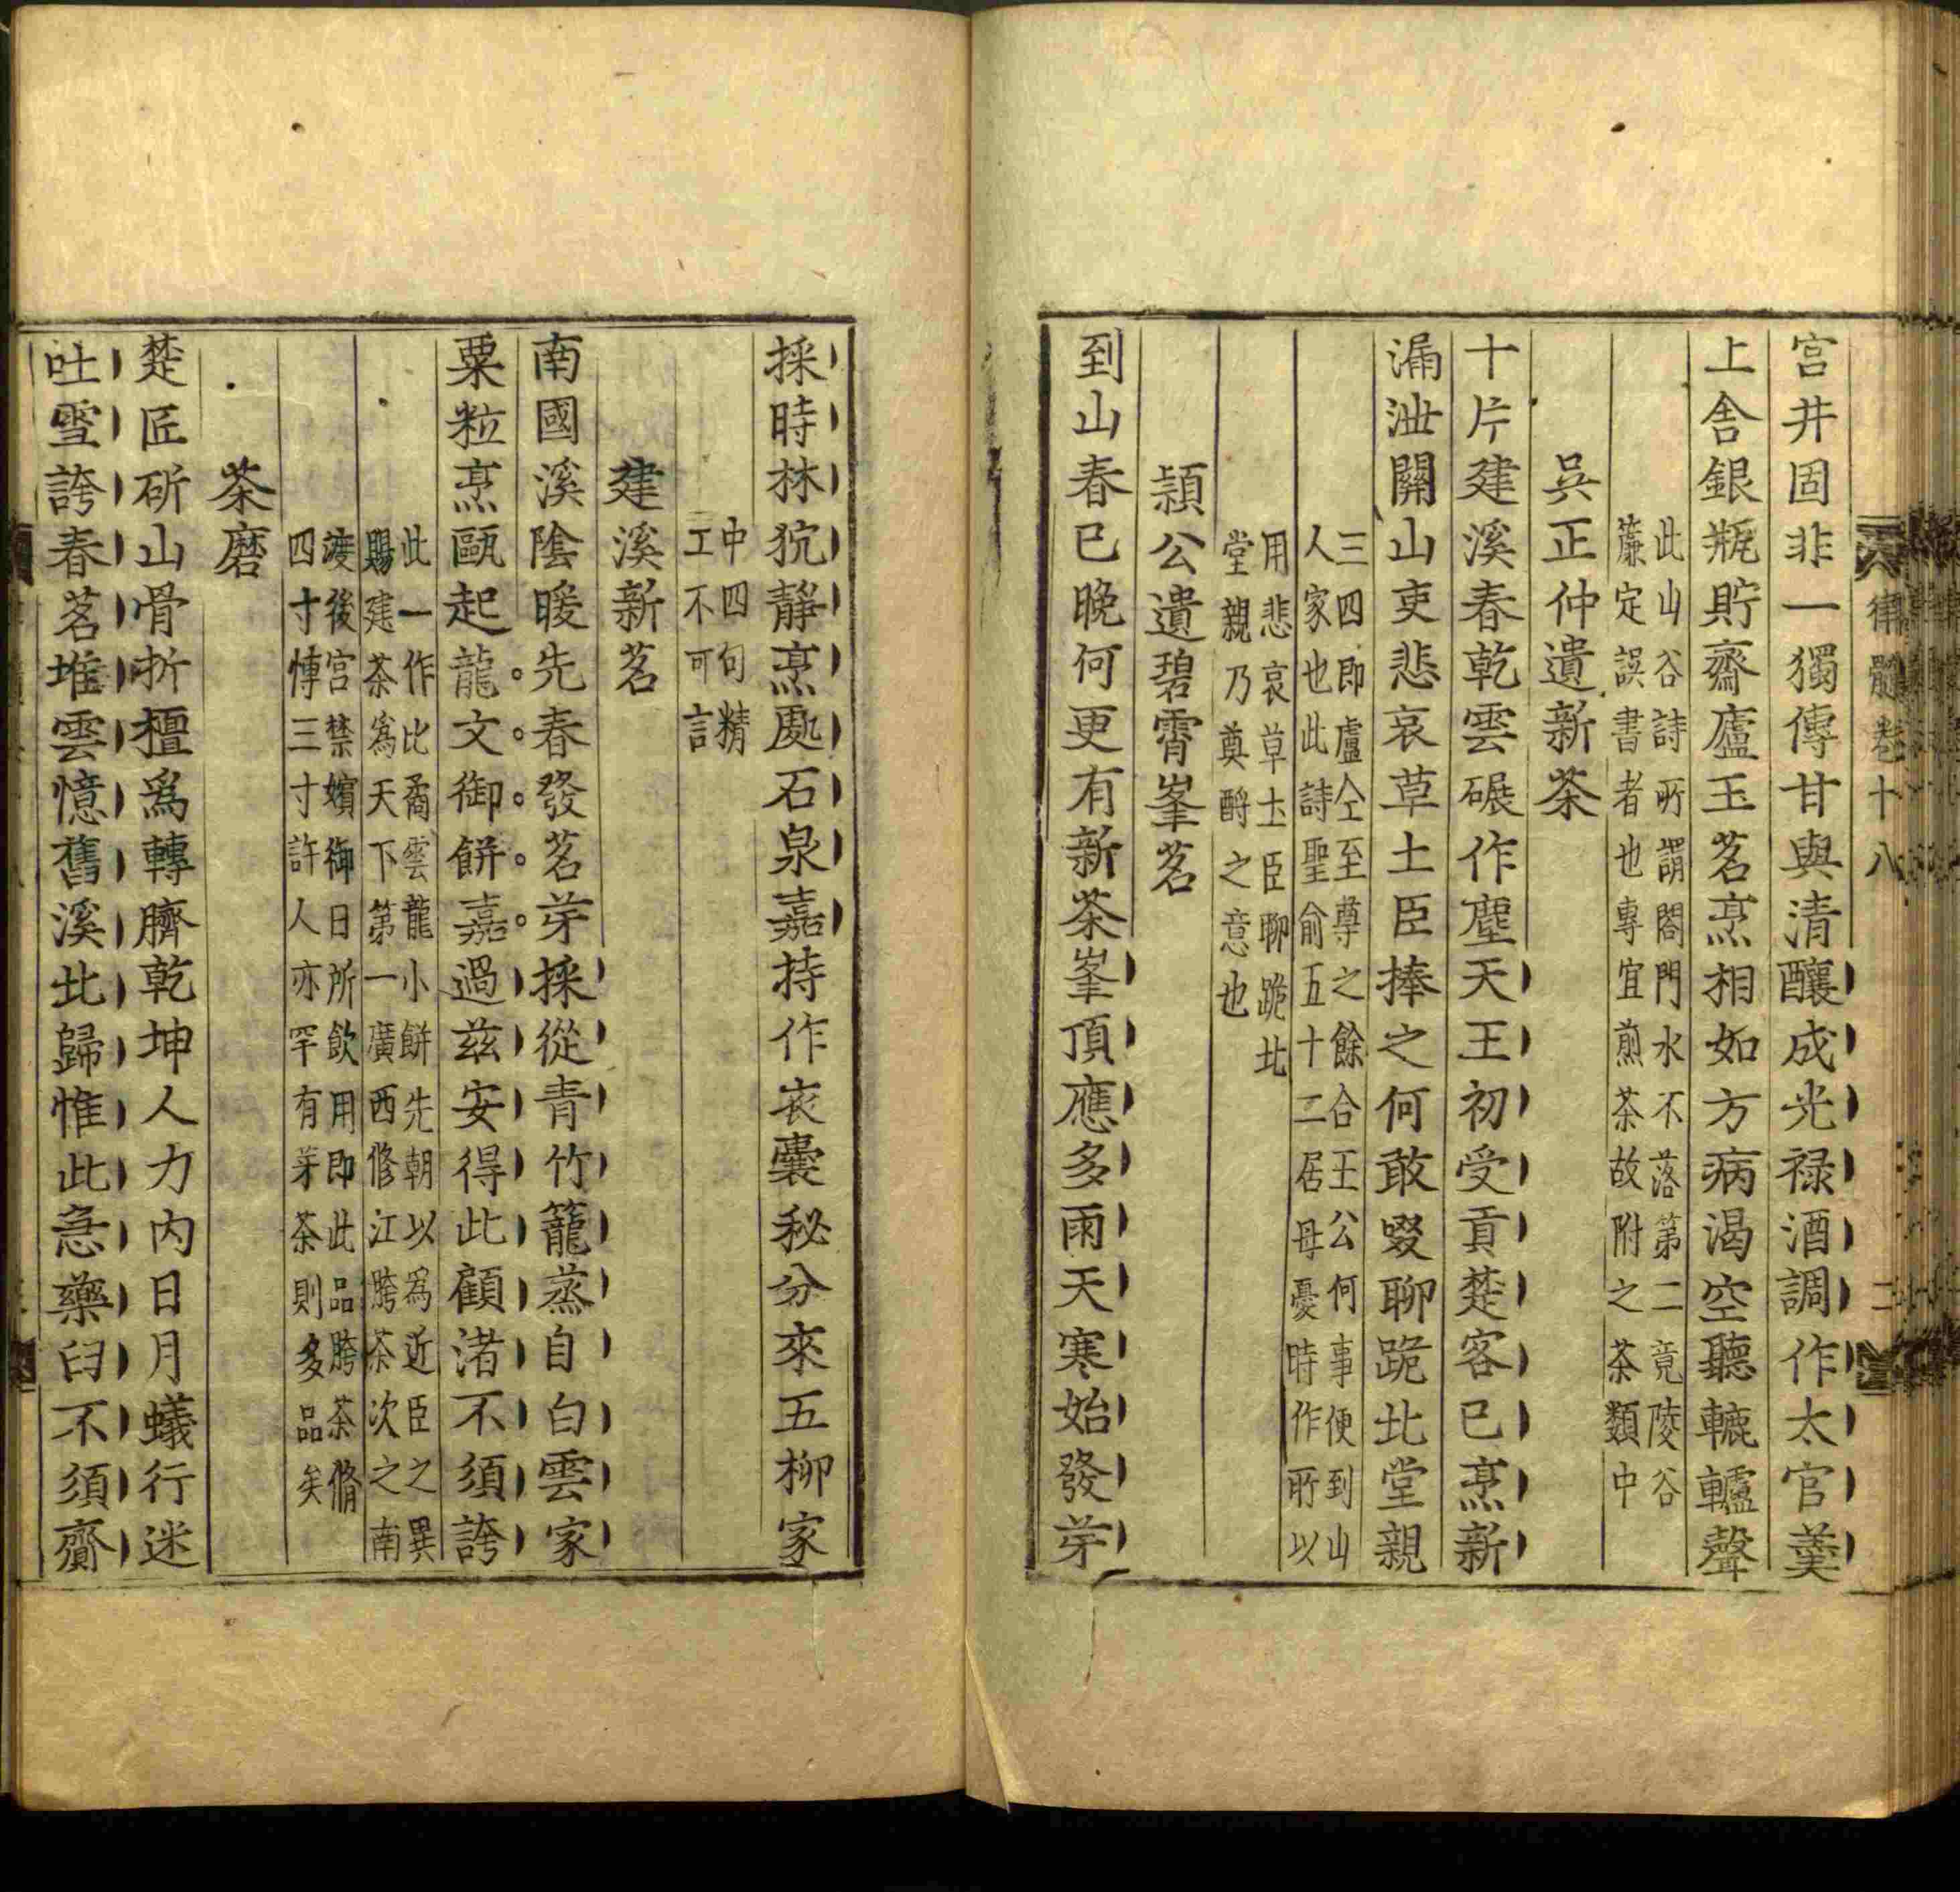 律髓卷十八 二
宫井固非一獨傳甘與清釀成光禄酒調作太官羹
上舎銀瓶貯齋廬玉茗烹相如方病渴空聽轆轤聲
此山谷詩所謂閤門水不落第二竟陵谷
簾定誤書者也專宜煎茶故附之茶類中
吳正仲遺新茶
十片建溪春乾雲碾作塵天王初受貢楚客已烹新
漏泄關山吏悲哀草土臣捧之何敢啜聊跪北堂親
三四即盧仝至尊之餘合王公何事便到山
人家也此詩聖俞五十二居母憂時作所以
用悲哀草土臣聊跪北
堂親乃奠酹之意也
頴公遺碧霄峯茗
到山春已晚何更有新茶峯頂應多雨天寒始發芽
採時林狖靜烹處石泉嘉持作衣囊秘分來五柳家
中四句精
工不可言
建溪新茗
南國溪隂暖先春發茗芽採從青竹籠蒸自白雲家
粟粒烹甌起龍文御餅嘉過兹安得此顧渚不須誇
此一作比矞雲龍小餅先朝以為近臣之異
賜建茶為天下第一廣西修江胯茶次之南
渡後宫禁嬪御日所飲用即此品胯茶脩
四寸慱三寸許人亦罕有芽茶則多品矣
茶磨
楚匠斫山骨折檀爲轉臍乾坤人力内日月蟻行迷
吐雪誇春茗堆雲憶舊溪北歸惟此急藥臼不須齎